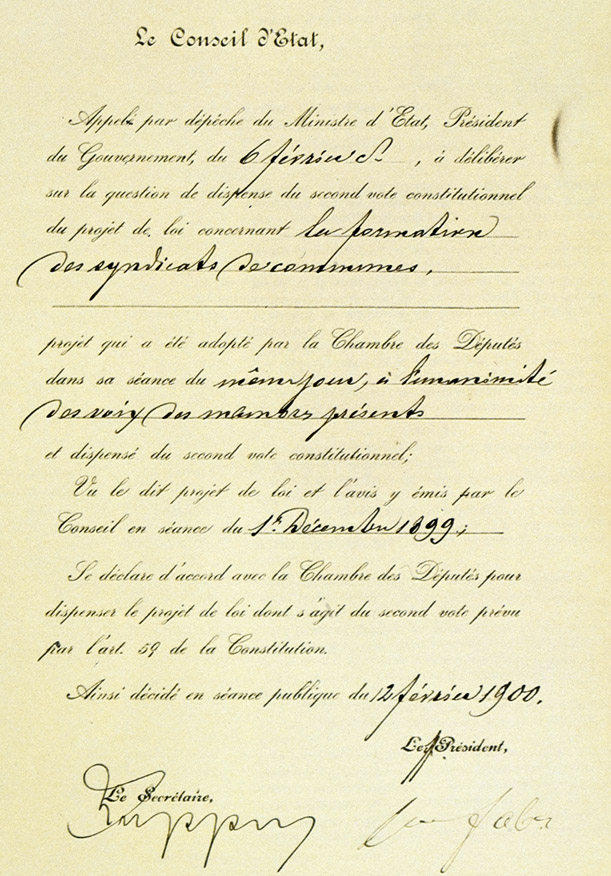 Le Conseil d'Etat,
Appelé par dépêche du Ministre d'Etat, Président
du Gouvernement, du 6 février , à délibérer
sur la question de dispense du second vote constitutionnel
du projet de loi concernant la formation
des syndicats de communes,
projet qui a été adopté par la Chambre des Députés
dans sa séance du même jour, à l'unanimité
des voix des membres présents
et dispensé du second vote constitutionnel;
Vu le dit projet de loi et l'avis y émis par le
Conseil en séance du 1er Décembre 1899;
Se déclare d'accord avec la Chambre des Députés pour
dispenser le projet de loi dont s'agit du second vote prévu
par l'art. 59 de la Constitution.
Ainsi décidé en séance publique du 12 février 1900.
Le Président,
Le Secrétaire,